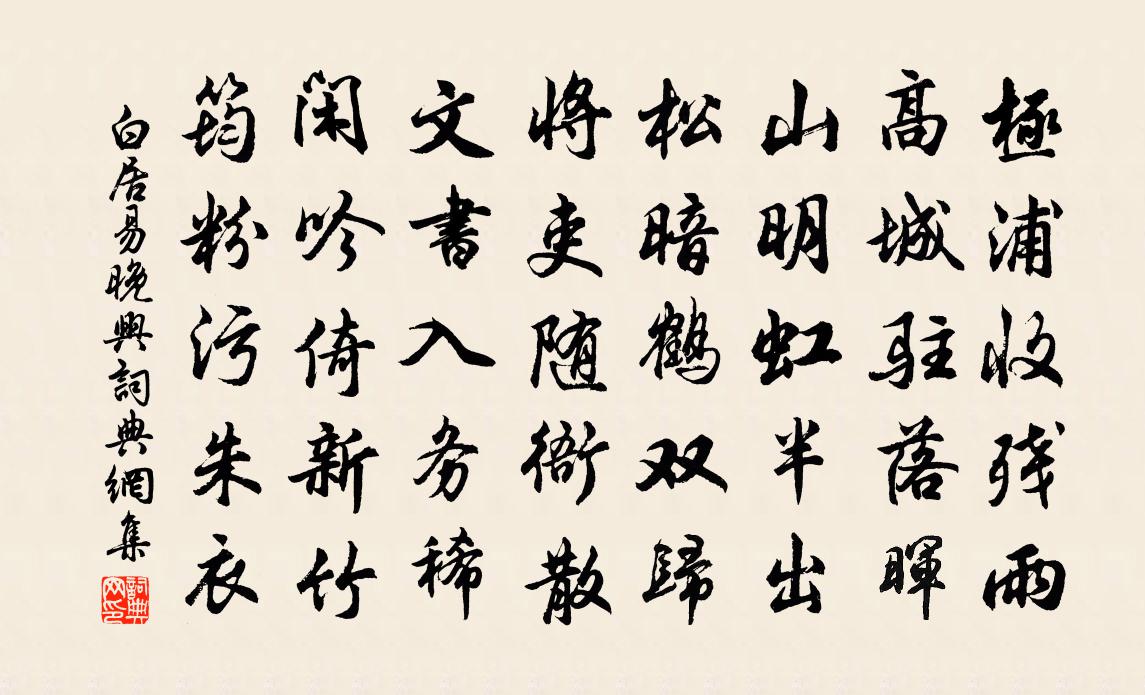 極浦收残雨
高城駐落暉
山明虹半出
松暗鶴双歸
将吏随衙散
文書入务稀
闲吟倚新竹
筠粉污朱衣
白居易晚興詞典網集
詞典网印